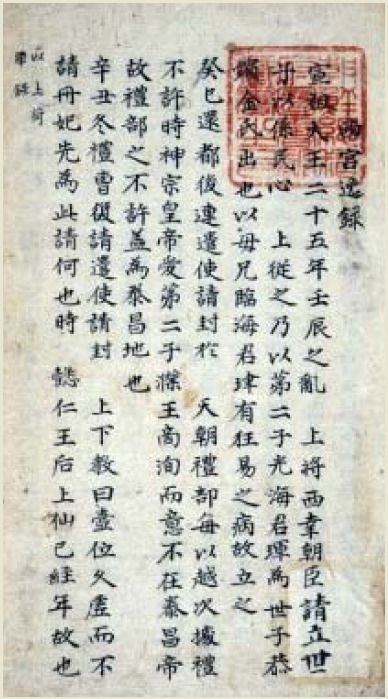 西宮逸錄
宣祖大王二十五年壬辰之亂 上將西幸朝臣請立世
子以係民心 上從之乃以第二子光海君琿爲世子恭
嬪金氏出也以母兄臨海君珒有狂易之病故立之
癸巳還都後連遣使請封於 天朝禮部每以越次據禮
不許時神宗皇帝愛第二子王商洵而意不在泰昌帝
故禮部之不許蓋爲泰昌地也
辛丑冬禮曹復請遣使請封 上下敎曰壼位久虛而不
請冊妃先爲此請何也時 懿仁王后上仙已經年故也
以上荷
潭錄